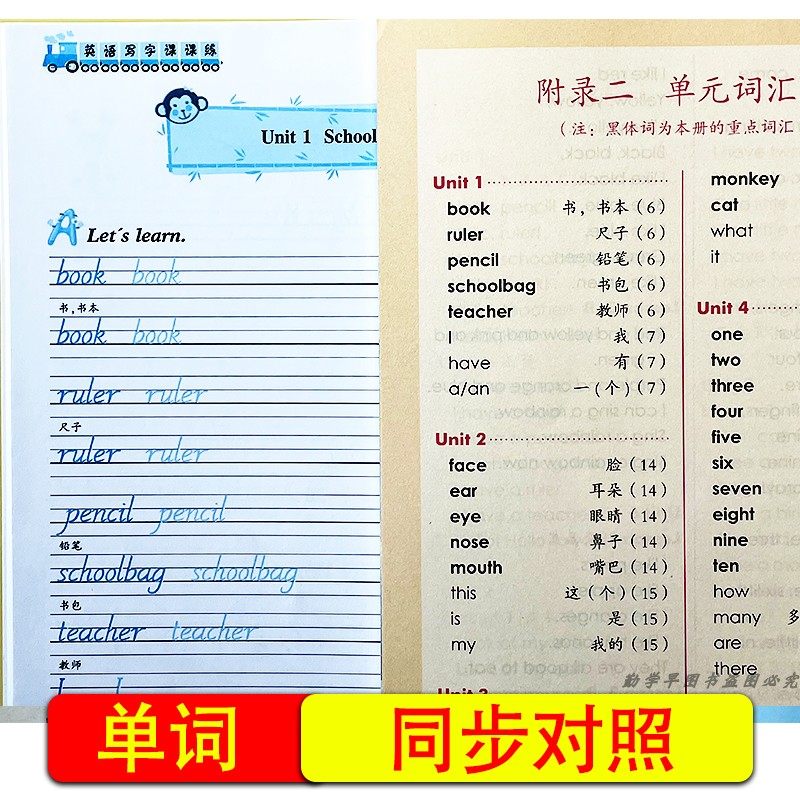 英语写字课课练
Unit 1 School
A Let's learn.
book book
书,书本
book book
ruler ruler
尺子
ruler ruler
pencil pencil
铅笔
schoolbag schoolbag
书包
teacher teacher
教师
I I
附录二 单元词汇
(注:黑体词为本册的重点词汇
Unit 1
book 书,书本(6)
ruler 尺子(6)
pencil 铅笔(6)
schoolbag 书包(6)
teacher 教师(6)
I 我(7)
have 有(7)
a/an 一(个)(7)
Unit 2
face 脸(14)
ear 耳朵(14)
eye 眼睛(14)
nose 鼻子(14)
mouth 嘴巴(14)
this 这(个)(15)
is 是(15)
my 我的(15)
Unit 3
monkey
cat
what
it
Unit 4
one
two
three
four
five
six
seven
eight
nine
ten
how
many 多
are
there
勤学早图书盗图必究
单词
同步对照